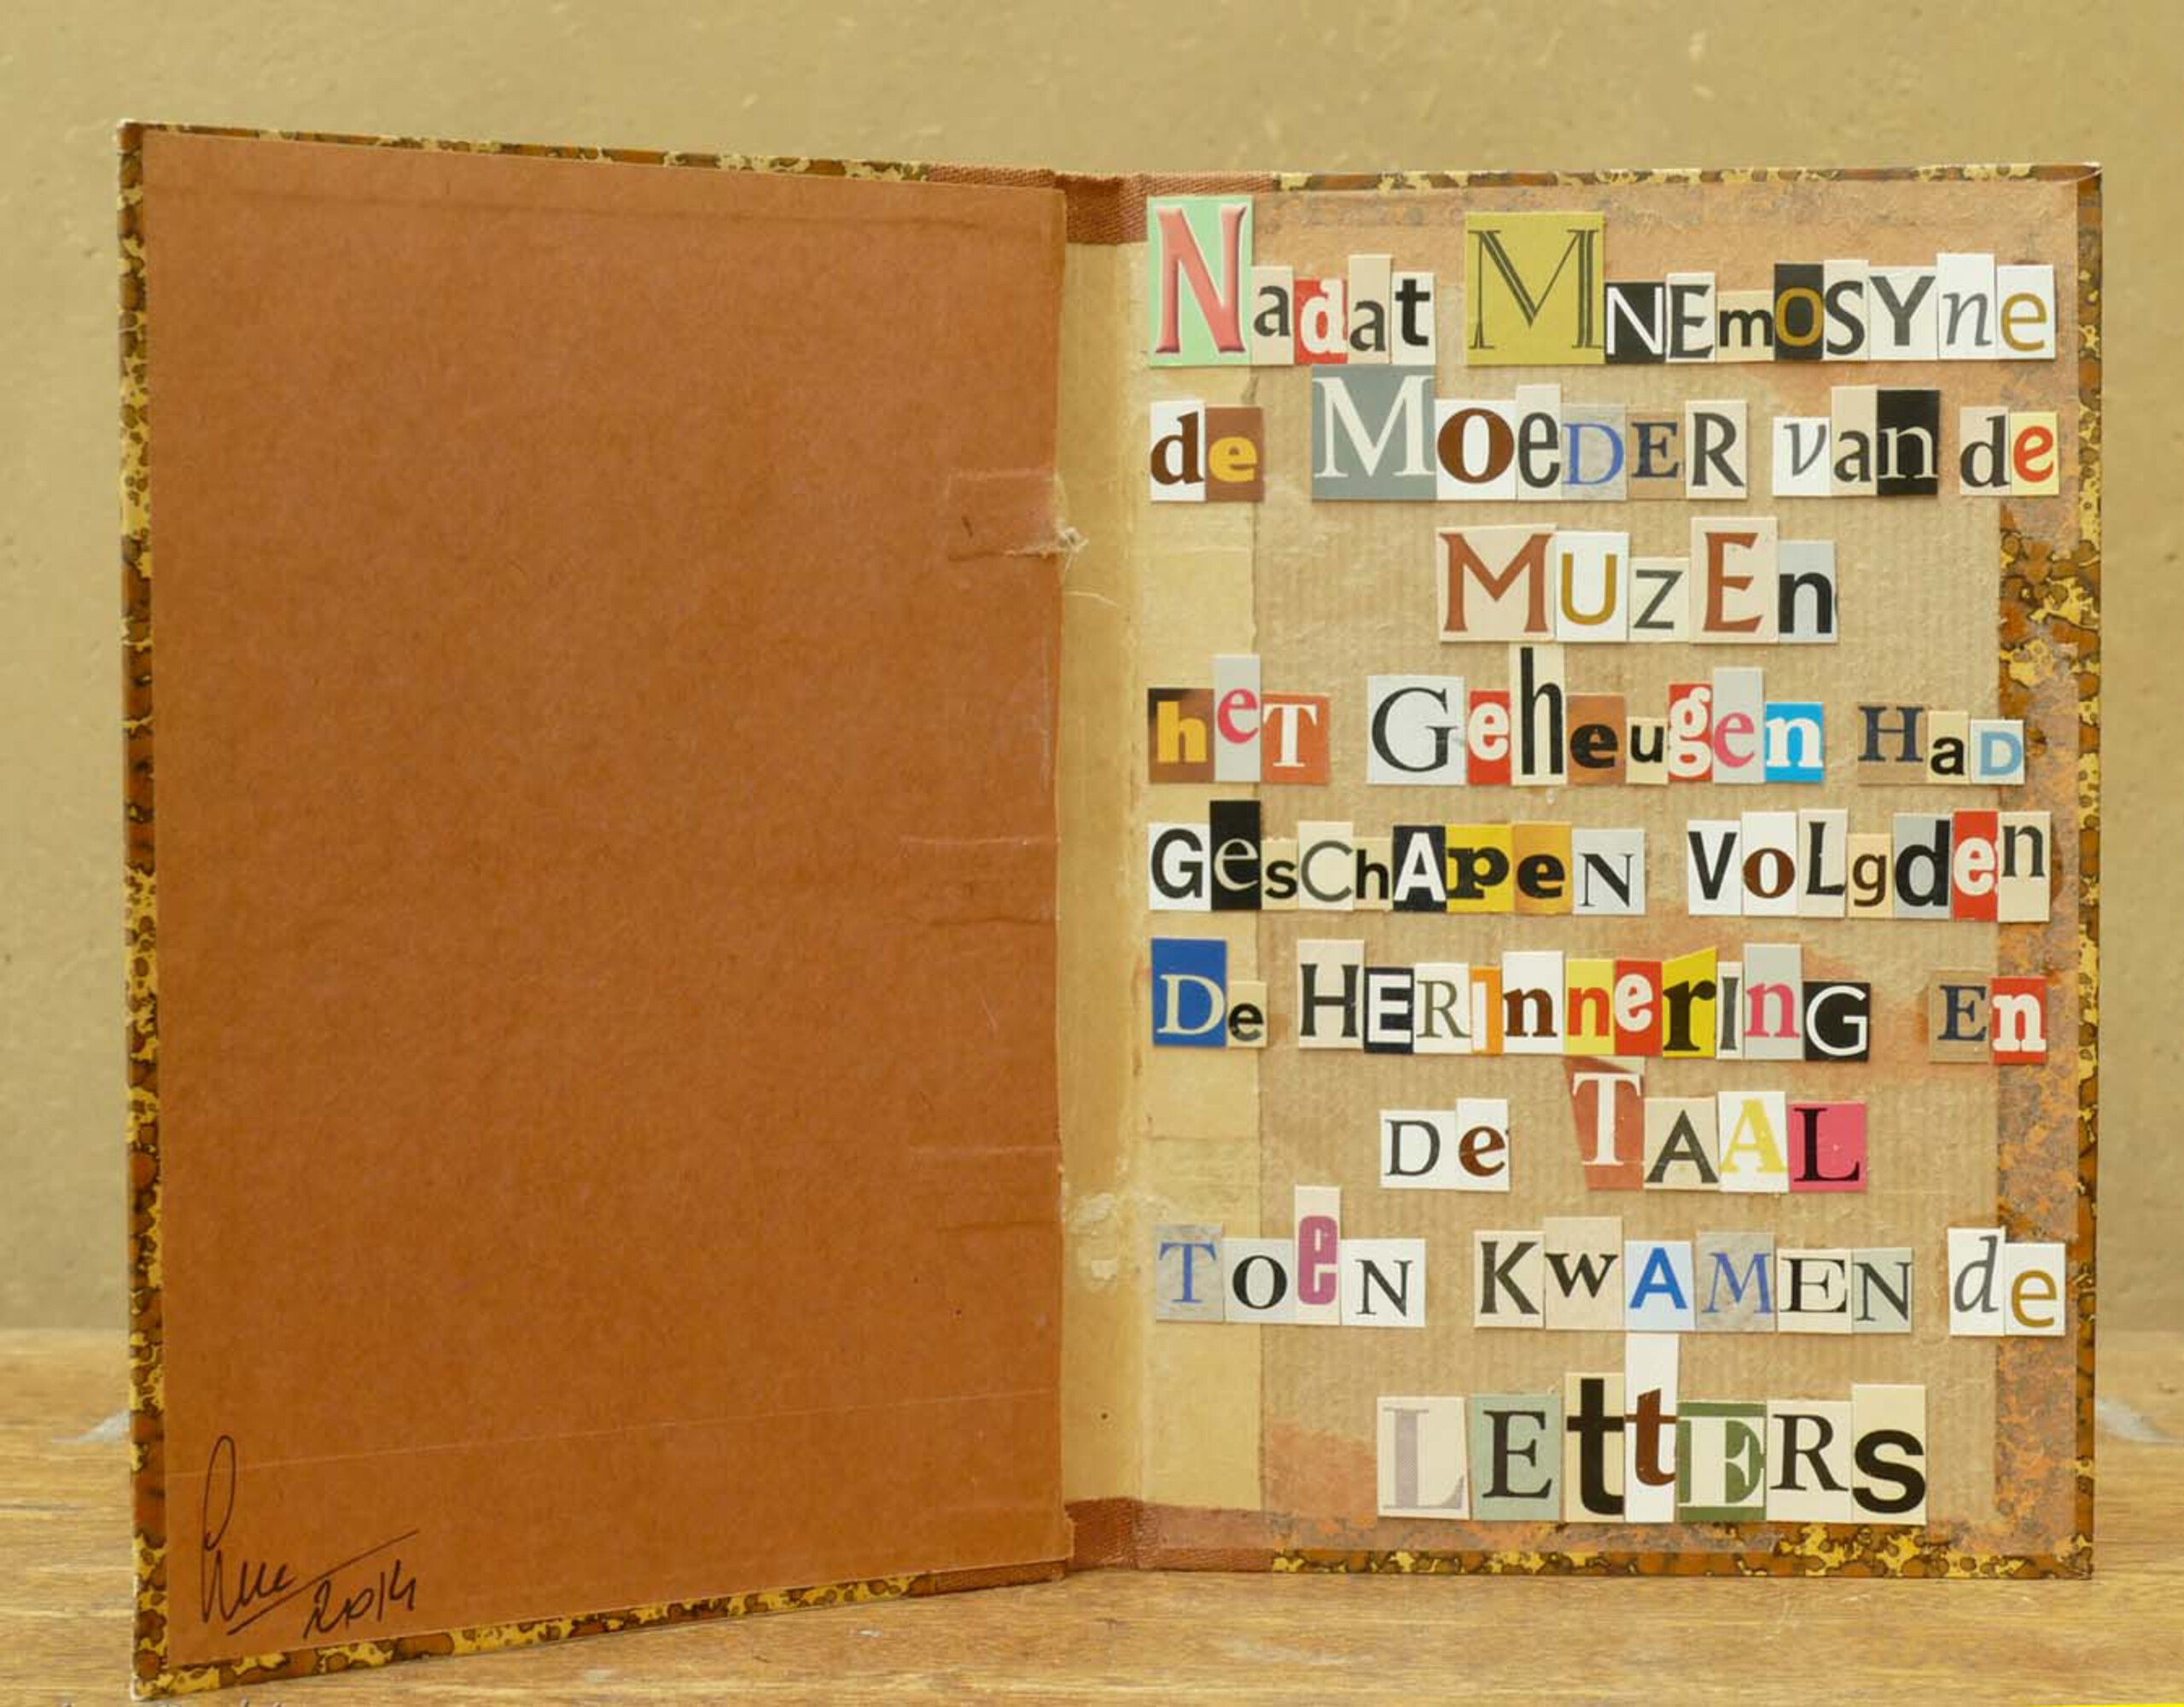 Nadat MNEmOSYne
de MOeDER van de
MUzEn
heT Geheugen HaD
GesChApeN VoLgden
De HERInnerIng En
De TAAL
ToeN KwAMEN de
LEttERs
2014